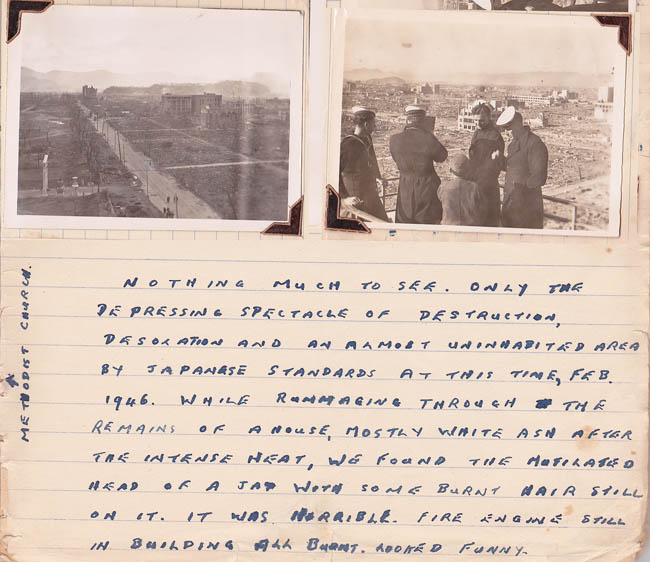 METHODIST CHURCH.
NOTHING MUCH TO SEE. ONLY THE
DEPRESSING SPECTACLE OF DESTRUCTION,
DESOLATION AND AN ALMOST UNINHABITED AREA
BY JAPANESE STANDARDS AT THIS TIME, FEB.
1946. WHILE RUMMAGING THROUGH THE
REMAINS OF A HOUSE, MOSTLY WHITE ASH AFTER
THE INTENSE HEAT, WE FOUND THE MUTILATED
HEAD OF A JAP WITH SOME BURNT HAIR STILL
ON IT. IT WAS HORRIBLE. FIRE ENGINE STILL
IN BUILDING ALL BURNT. LOOKED FUNNY.